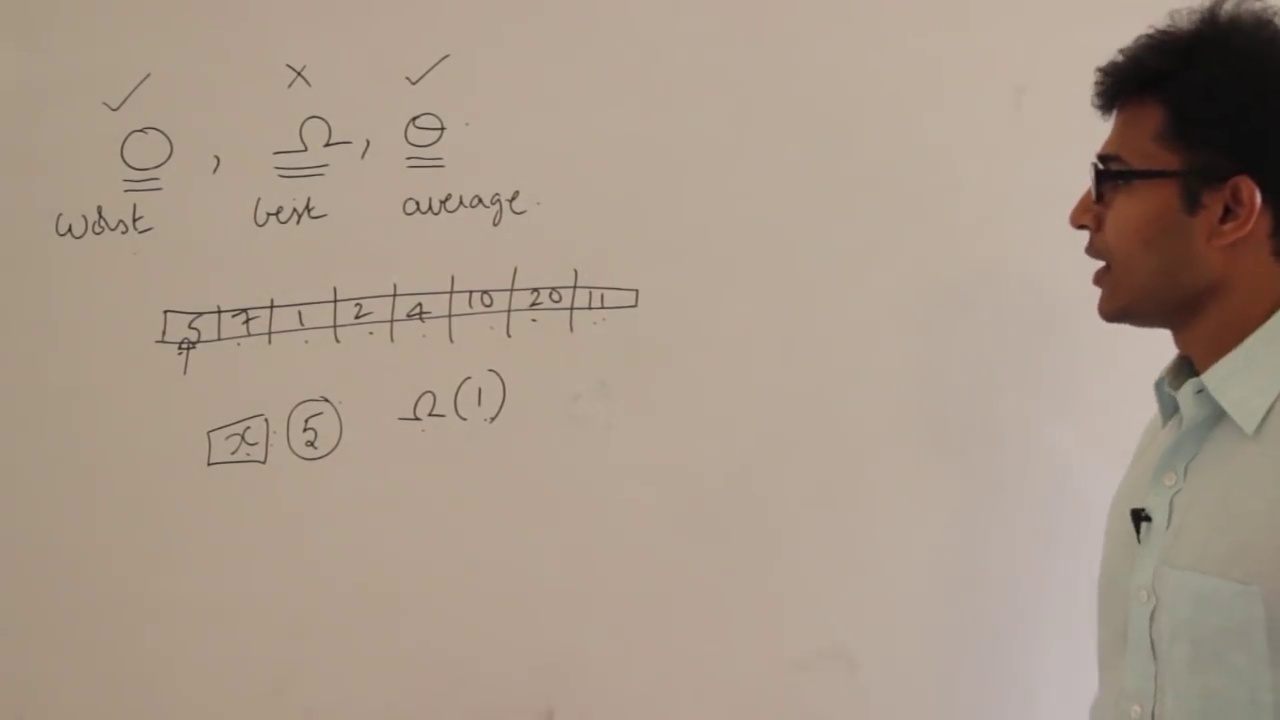 ✓ × ✓
O, Ω, θ
worst best average.
5 7 1 2 4 10 20 11
x 5 Ω(1)